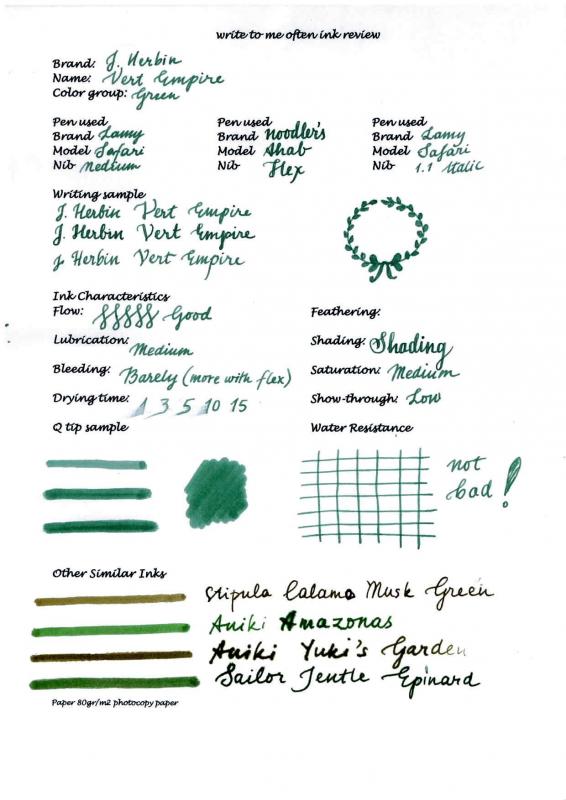 write to me often ink review
Brand: J. Herbin
Name: Vert Empire
Color group: Green
Pen used
Brand Lamy
Model Safari
Nib Medium
Pen used
Brand Noodler's
Model Ahab
Nib Flex
Pen used
Brand Lamy
Model Safari
Nib 1.1 Italic
Writing sample
J. Herbin Vert Empire
J. Herbin Vert Empire
J. Herbin Vert Empire
Ink Characteristics
Flow: Good
Lubrication: Medium
Bleeding: Barely (more with flex)
Drying time: 1 3 5 10 15
Feathering:
Shading: Shading
Saturation: Medium
Show-through: Low
Q tip sample
Water Resistance
not
bad!
Other Similar Inks
Stipula Calamo Musk Green
Aniki Amazonas
Aniki Yuki's Garden
Sailor Jentle Epinard
Paper 80gr/m2 photocopy paper